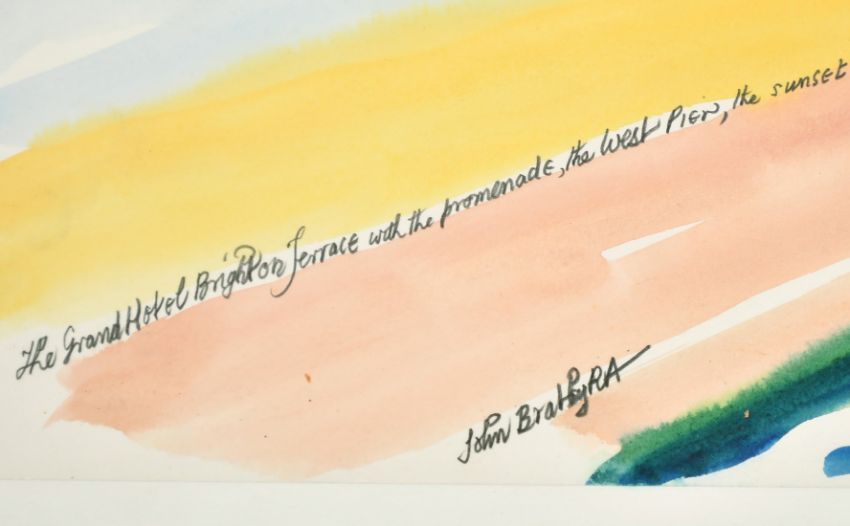 The Grand Hotel Brighton Terrace with the promenade, the West Pier, the sunset
John Bratby RA